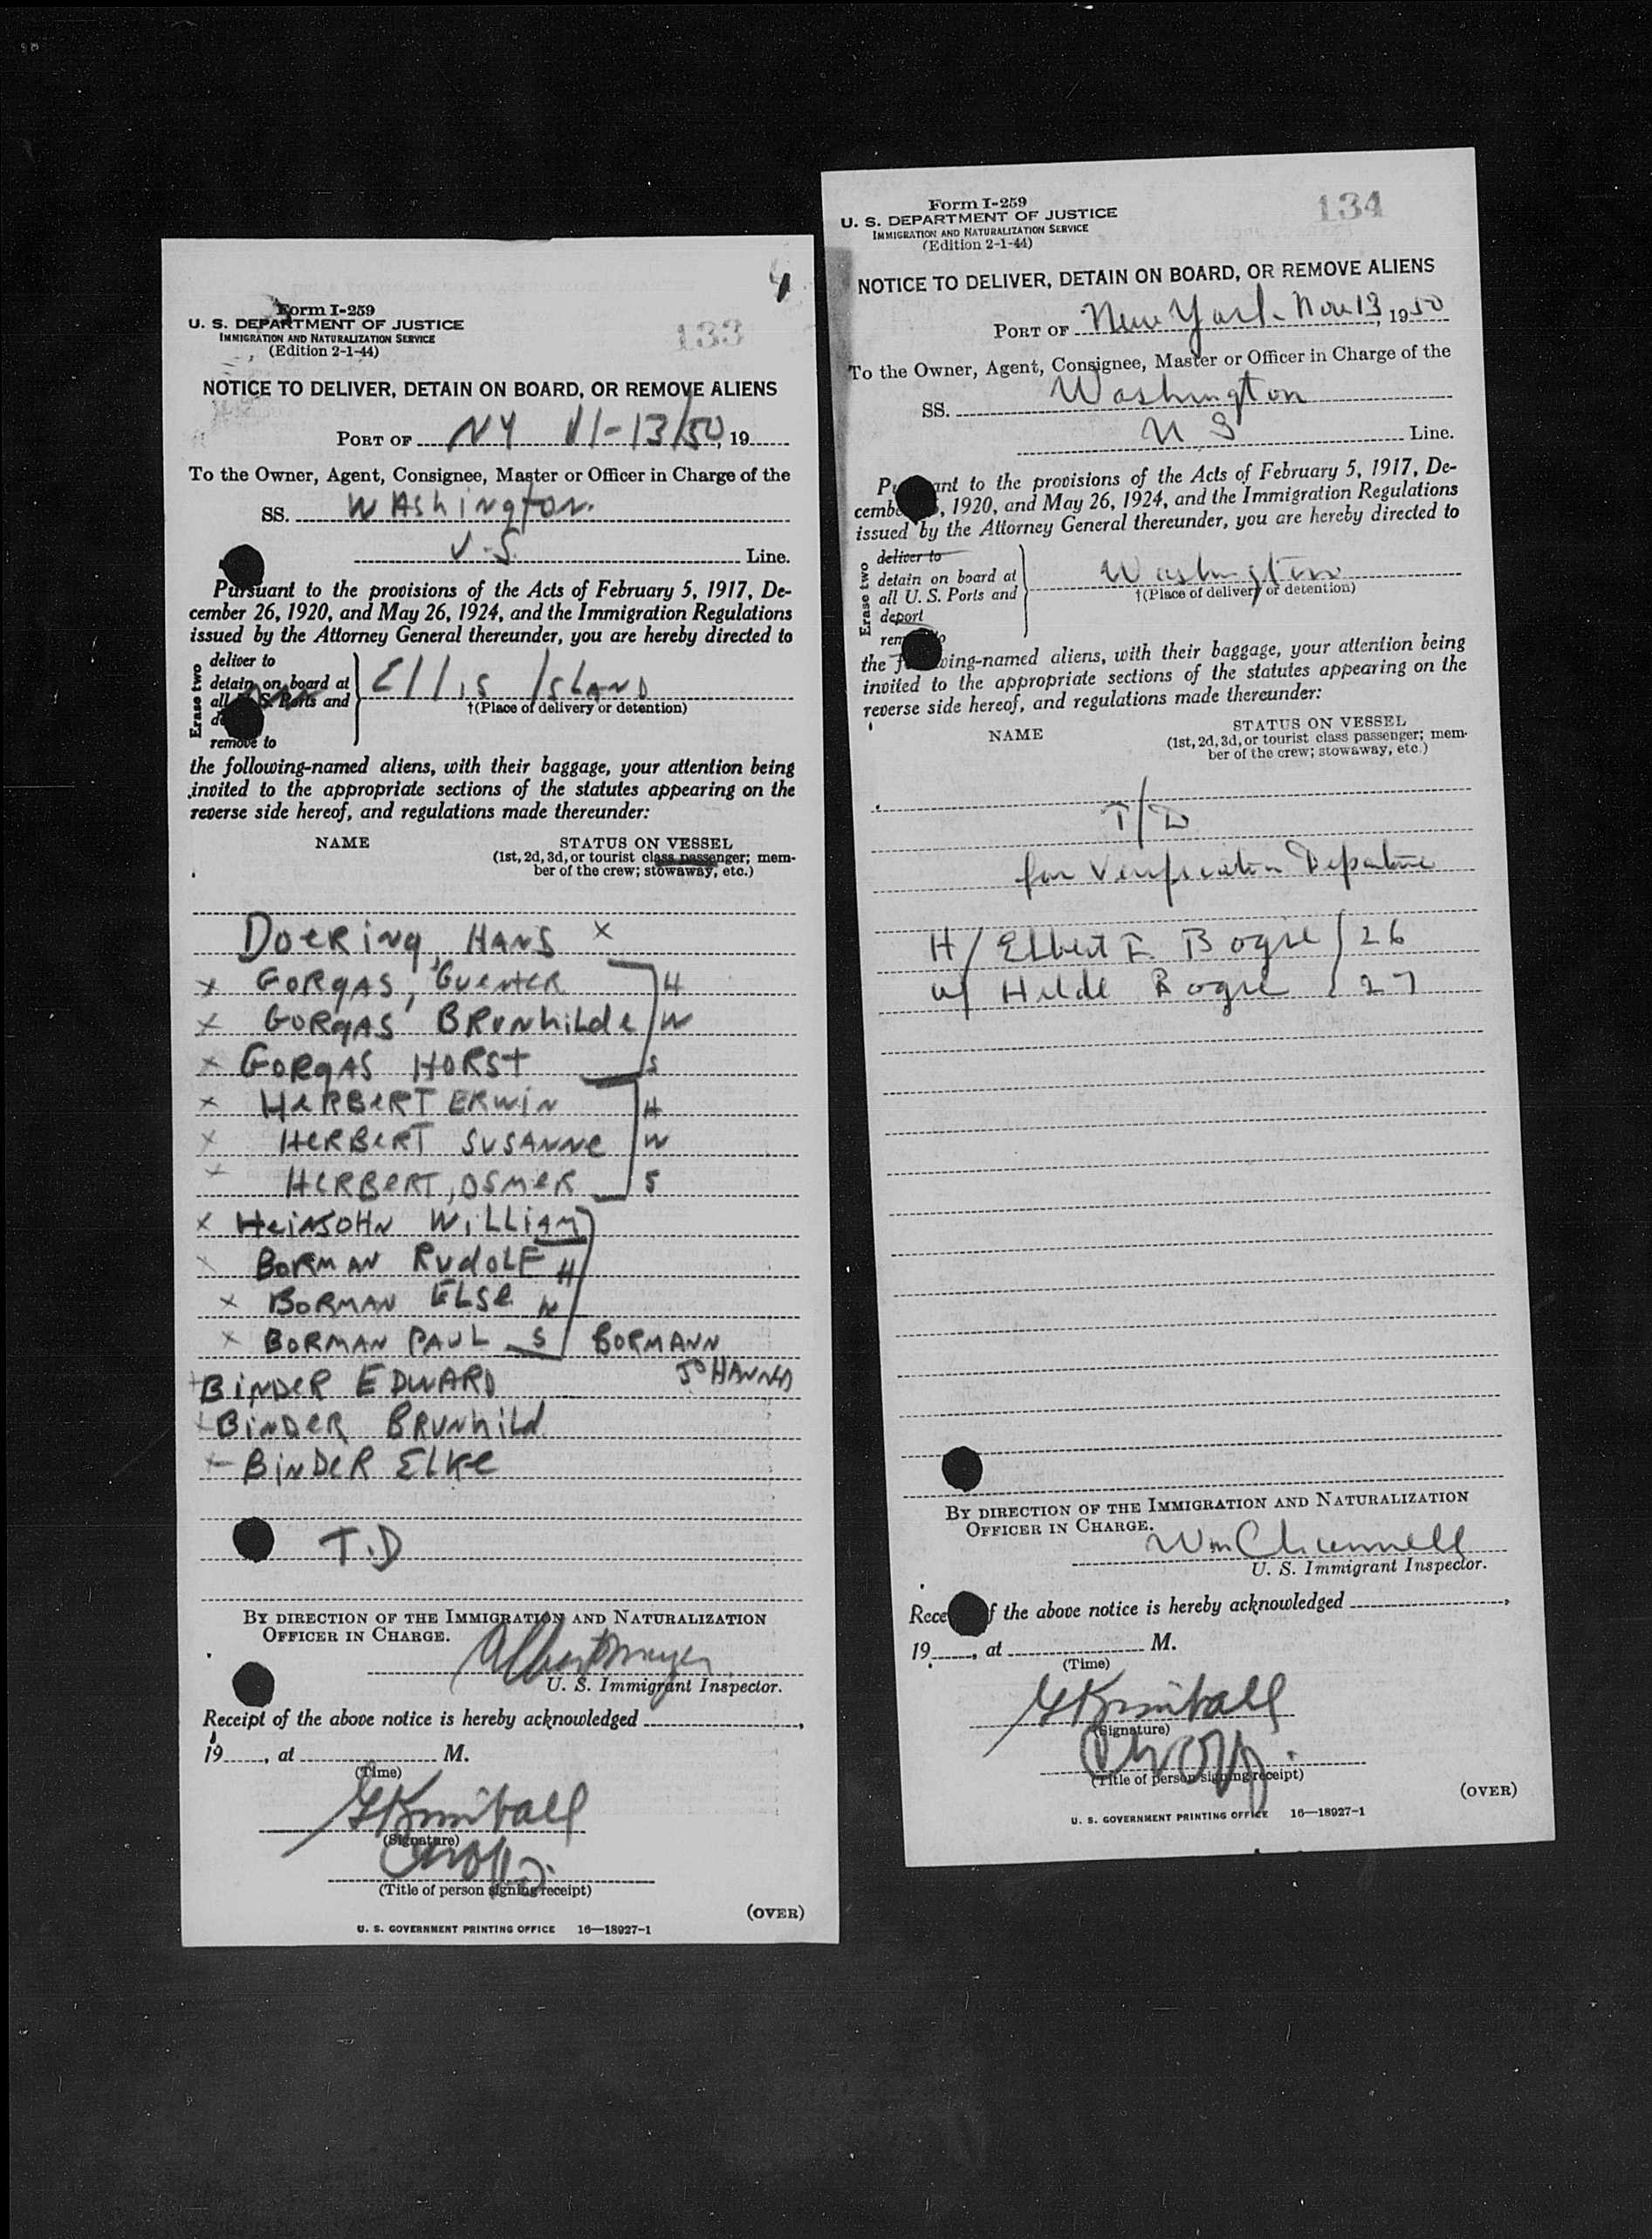 4
Form I-259
133
U. S. DEPARTMENT OF JUSTICE
IMMIGRATION AND NATURALIZATION SERVICE
(Edition 2-1-44)
NOTICE TO DELIVER, DETAIN ON BOARD, OR REMOVE ALIENS
PORT OF NY 11-13/50, 19
To the Owner, Agent, Consignee, Master or Officer in Charge of the
SS. WAShington
U.S. Line.
Pursuant to the provisions of the Acts of February 5, 1917, De-
cember 26, 1920, and May 26, 1924, and the Immigration Regulations
issued by the Attorney General thereunder, you are hereby directed to
Erase two
deliver to
detain on board at
all U. S. Ports and
remove to
Ellis ISLAND
†(Place of delivery or detention)
the following-named aliens, with their baggage, your attention being
invited to the appropriate sections of the statutes appearing on the
reverse side hereof, and regulations made thereunder:
NAME STATUS ON VESSEL
(1st, 2d, 3d, or tourist class passenger; mem-
ber of the crew; stowaway, etc.)
DOERING, HANS x
x GORGAS, GUENTER H
x GORGAS BRUNhiLde W
x GORGAS HORST S
x HERBERT ERWIN H
x HERBERT SUSANNE W
x HERBERT, OSMER S
x HEINSOHN WILLIAM
x BORMAN RUDOLF H
x BORMAN ELSE W
x BORMAN PAUL S BORMANN
JOHANNES
x BINDER EDWARD
x BINDER BRUNhiLd
x BINDER ELKE
T.D
BY DIRECTION OF THE IMMIGRATION AND NATURALIZATION
OFFICER IN CHARGE.
Albert Meyer
U. S. Immigrant Inspector.
Receipt of the above notice is hereby acknowledged ,
19 , at M.
(Time)
G Kimball
(Signature)
(Title of person signing receipt)
(OVER)
U. S. GOVERNMENT PRINTING OFFICE 16—18927-1
Form I-259
134
U. S. DEPARTMENT OF JUSTICE
IMMIGRATION AND NATURALIZATION SERVICE
(Edition 2-1-44)
NOTICE TO DELIVER, DETAIN ON BOARD, OR REMOVE ALIENS
PORT OF New York Nov 13, 1950
To the Owner, Agent, Consignee, Master or Officer in Charge of the
SS. Washington
U S Line.
Pursuant to the provisions of the Acts of February 5, 1917, De-
cember 26, 1920, and May 26, 1924, and the Immigration Regulations
issued by the Attorney General thereunder, you are hereby directed to
Erase two
deliver to
detain on board at
all U. S. Ports and
deport
remove to
Washington
†(Place of delivery or detention)
the following-named aliens, with their baggage, your attention being
invited to the appropriate sections of the statutes appearing on the
reverse side hereof, and regulations made thereunder:
NAME STATUS ON VESSEL
(1st, 2d, 3d, or tourist class passenger; mem-
ber of the crew; stowaway, etc.)
T/D
for Verification Departure
H/ Elbert F. Bogie / 26
W/ Hilde Bogie / 27
BY DIRECTION OF THE IMMIGRATION AND NATURALIZATION
OFFICER IN CHARGE.
Wm Channell
U. S. Immigrant Inspector.
Receipt of the above notice is hereby acknowledged ,
19 , at M.
(Time)
G Kimball
(Signature)
(Title of person signing receipt)
(OVER)
U. S. GOVERNMENT PRINTING OFFICE 16—18927-1